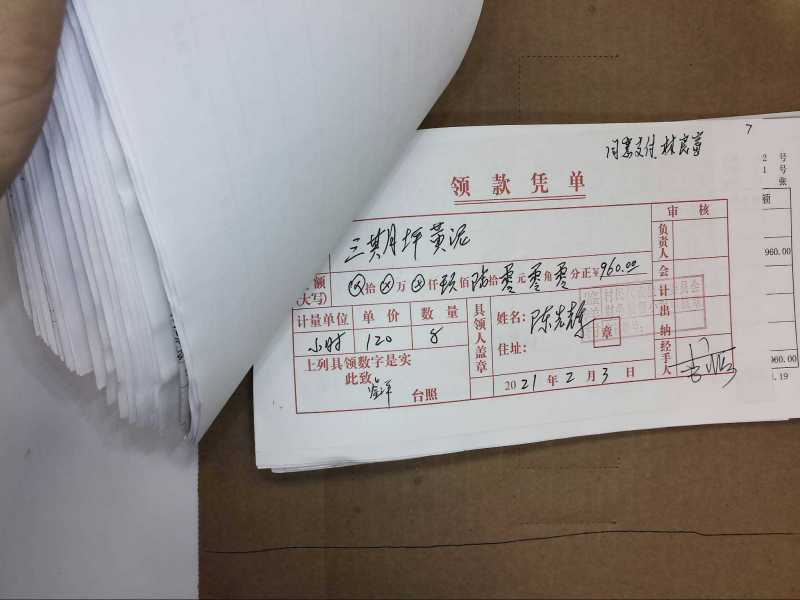 7
同意支付 林
领款凭单
三期坪黄泥
审核
额
(大写)
⊗拾⊗万⊗仟玖佰陆拾零元零角零分正¥960.00
负责人
会计
出纳
经手人
计量单位 单价 数量
小时 120 8
上列具领数字是实
此致
台照
具领人盖章
姓名：陈
住址：
章
2021年2月3日
2 号
1 号
张
额
960.00
960.00
1.19